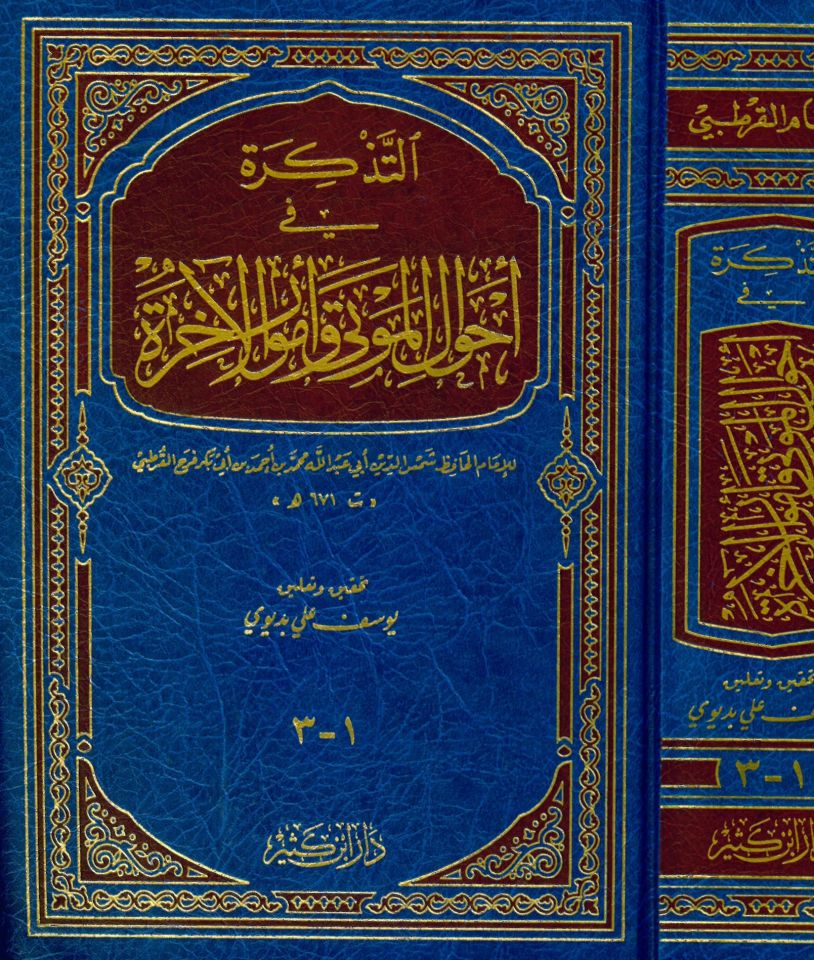 التَّذْكِرَة
في
أحوال الموتى وأمور الآخرة
للإمام الحافظ شمس الدين أبي عبد الله محمد بن أحمد بن أبي بكر فرج القرطبي
« ت ٦٧١ هـ »
تحقيق وتعليق
يوسف علي بديوي
١-٣
دار ابن كثير
القرطبي
في
أحوال الموتى وأمور الآخرة
تحقيق وتعليق
علي بديوي
١-٣
ابن كثير